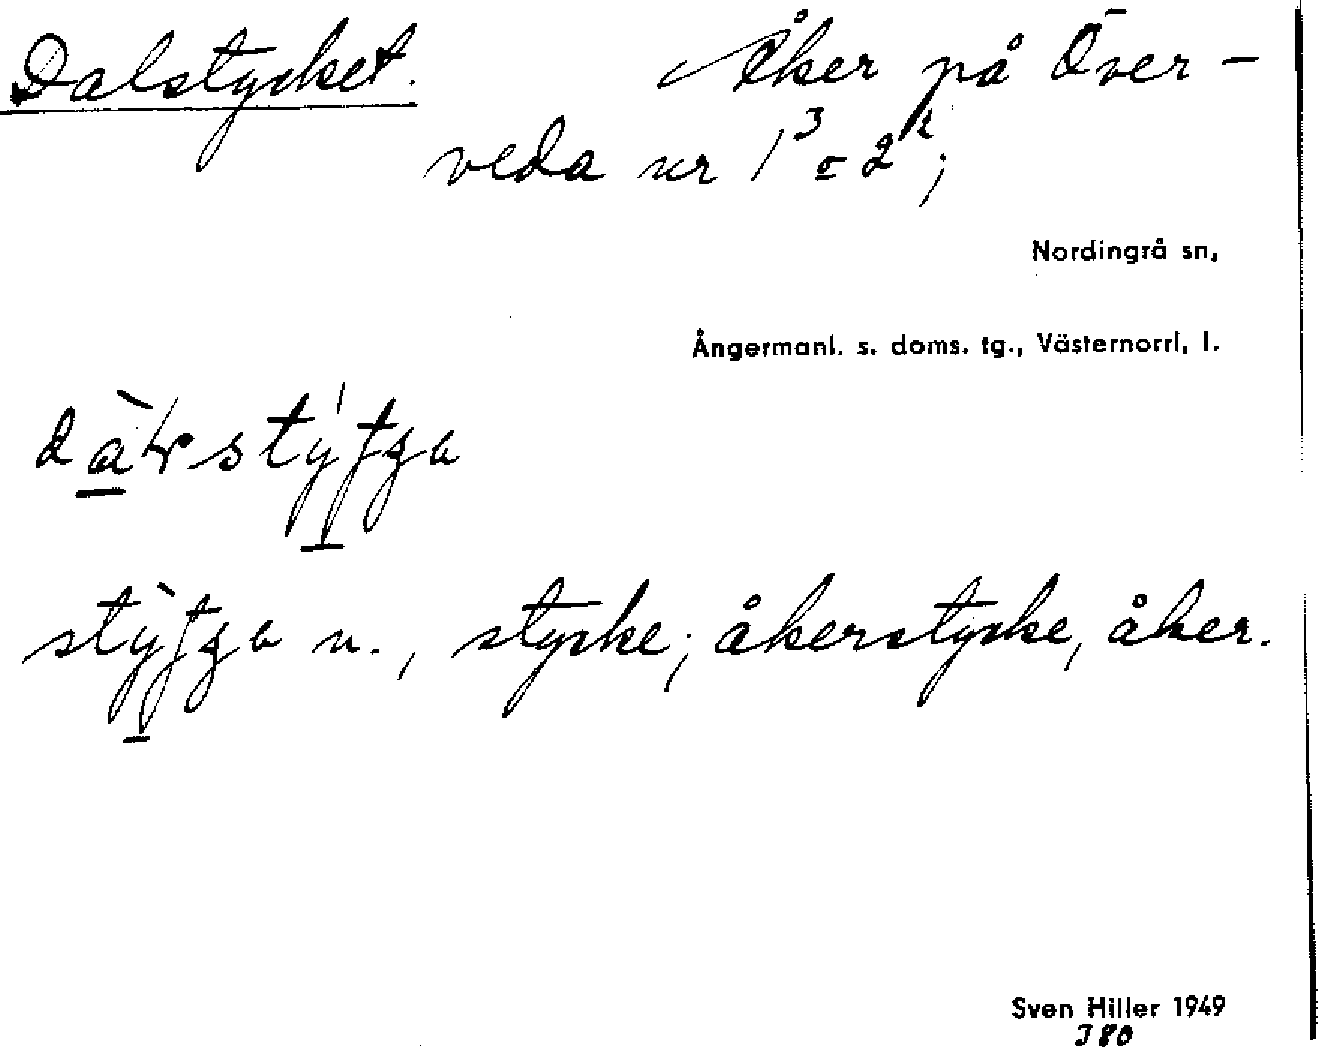 Dalstycket. Åker på Över-
veda nr 1³ o 2²;
Nordingrå sn,
Ångermanl. s. doms. tg., Västernorrl. l.
n., stycke; åkerstycke, åker.
Sven Hiller 1949
J80